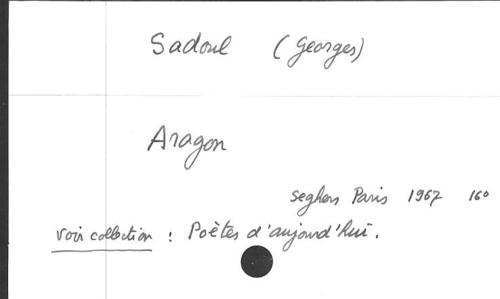 Sadoul (Georges)
Aragon
Seghers Paris 1967 16°
voir collection : Poètes d'aujourd'hui.